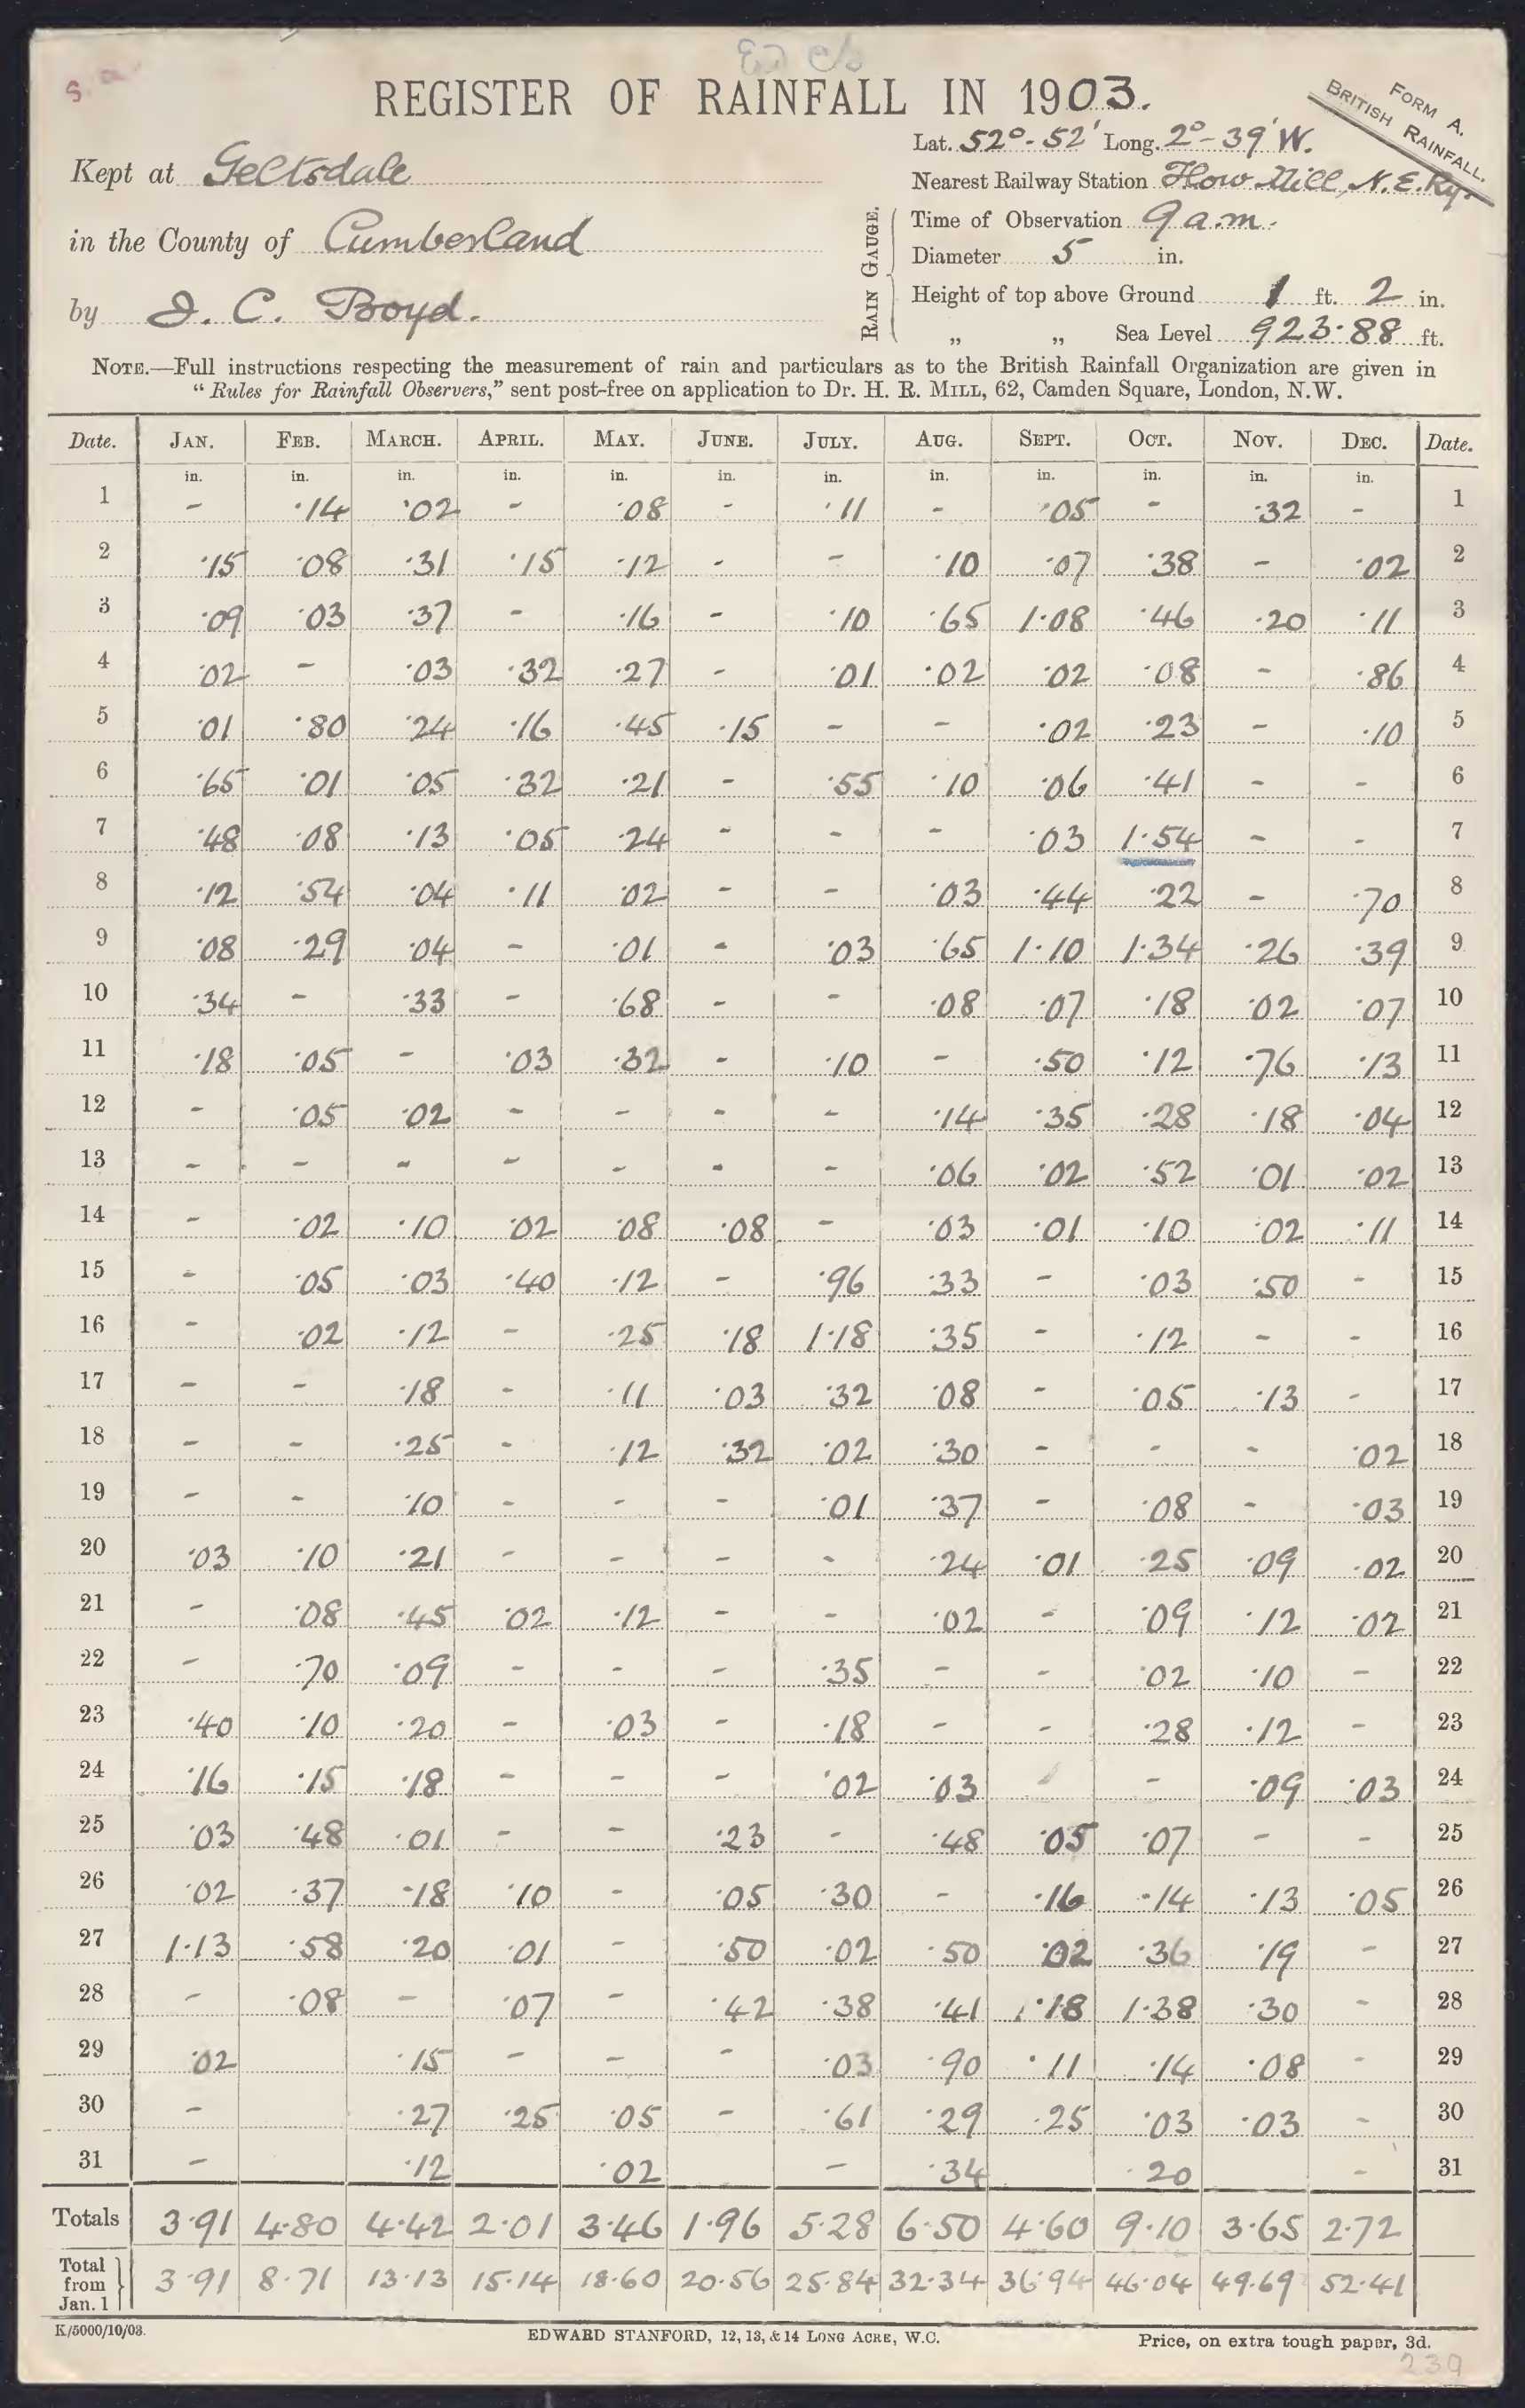 REGISTER OF RAINFALL IN 1903.
FORM A.
BRITISH RAINFALL.
Kept at Geltsdale
in the County of Cumberland
by J. C. Boyd.
Lat. 52°-52' Long. 2°-39' W.
Nearest Railway Station How Mill, N.E.Ry.
RAIN GAUGE.
Time of Observation 9 a.m.
Diameter 5 in.
Height of top above Ground 1 ft. 2 in.
„ „ Sea Level 923·88 ft.
NOTE.—Full instructions respecting the measurement of rain and particulars as to the British Rainfall Organization are given in
"Rules for Rainfall Observers," sent post-free on application to Dr. H. R. MILL, 62, Camden Square, London, N.W.
Date. JAN. FEB. MARCH. APRIL. MAY. JUNE. JULY. AUG. SEPT. OCT. NOV. DEC. Date.
in. in. in. in. in. in. in. in. in. in. in. in.
1 - ·14 ·02 - ·08 - ·11 - ·05 - ·32 - 1
2 ·15 ·08 ·31 ·15 ·12 - - ·10 ·07 ·38 - ·02 2
3 ·09 ·03 ·37 - ·16 - ·10 ·65 1·08 ·46 ·20 ·11 3
4 ·02 - ·03 ·32 ·27 - ·01 ·02 ·02 ·08 - ·86 4
5 ·01 ·80 ·24 ·16 ·45 ·15 - - ·02 ·23 - ·10 5
6 ·65 ·01 ·05 ·32 ·21 - ·55 ·10 ·06 ·41 - - 6
7 ·48 ·08 ·13 ·05 ·24 - - - ·03 1·54 - - 7
8 ·12 ·54 ·04 ·11 ·02 - - ·03 ·44 ·22 - ·70 8
9 ·08 ·29 ·04 - ·01 - ·03 ·65 1·10 1·34 ·26 ·39 9
10 ·34 - ·33 - ·68 - - ·08 ·07 ·18 ·02 ·07 10
11 ·18 ·05 - ·03 ·32 - ·10 - ·50 ·12 ·76 ·13 11
12 - ·05 ·02 - - - - ·14 ·35 ·28 ·18 ·04 12
13 - - - - - - - ·06 ·02 ·52 ·01 ·02 13
14 - ·02 ·10 ·02 ·08 ·08 - ·03 ·01 ·10 ·02 ·11 14
15 - ·05 ·03 ·40 ·12 - ·96 ·33 - ·03 ·50 - 15
16 - ·02 ·12 - ·25 ·18 1·18 ·35 - ·12 - - 16
17 - - ·18 - ·11 ·03 ·32 ·08 - ·05 ·13 - 17
18 - - ·25 - ·12 ·32 ·02 ·30 - - - ·02 18
19 - - ·10 - - - ·01 ·37 - ·08 - ·03 19
20 ·03 ·10 ·21 - - - - ·24 ·01 ·25 ·09 ·02 20
21 - ·08 ·45 ·02 ·12 - - ·02 - ·09 ·12 ·02 21
22 - ·70 ·09 - - - ·35 - - ·02 ·10 - 22
23 ·40 ·10 ·20 - ·03 - ·18 - - ·28 ·12 - 23
24 ·16 ·15 ·18 - - - ·02 ·03 - ·09 ·03 24
25 ·03 ·48 ·01 - - ·23 - ·48 ·05 ·07 - - 25
26 ·02 ·37 ·18 ·10 - ·05 ·30 - ·16 ·14 ·13 ·05 26
27 1·13 ·58 ·20 ·01 - ·50 ·02 ·50 ·02 ·36 ·19 - 27
28 - ·08 - ·07 - ·42 ·38 ·41 ·18 1·38 ·30 - 28
29 ·02 ·15 - - - ·03 ·90 ·11 ·14 ·08 - 29
30 - ·27 ·25 ·05 - ·61 ·29 ·25 ·03 ·03 - 30
31 - ·12 ·02 - ·34 ·20 - 31
Totals 3·91 4·80 4·42 2·01 3·46 1·96 5·28 6·50 4·60 9·10 3·65 2·72
Total from Jan. 1 3·91 8·71 13·13 15·14 18·60 20·56 25·84 32·34 36·94 46·04 49·69 52·41
K/5000/10/03.
EDWARD STANFORD, 12, 13, & 14 LONG ACRE, W.C.
Price, on extra tough paper, 3d.
239